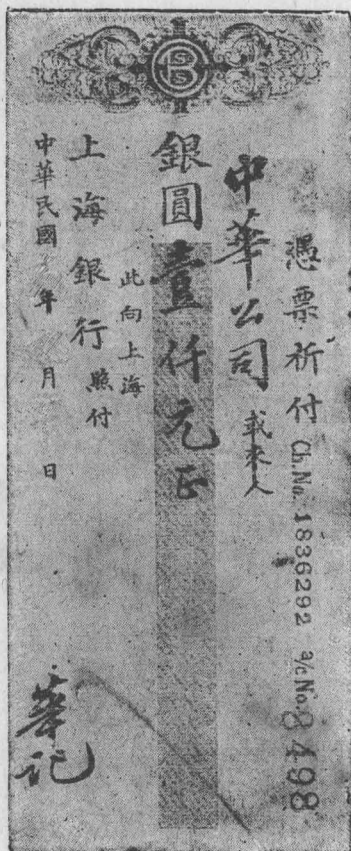 憑票祈付 Ch.No. 1836292 a/c No. 8498
中華公司 或來人
銀圓壹仟元正
此向上海
上海銀行 照付
中華民國 年 月 日
華記